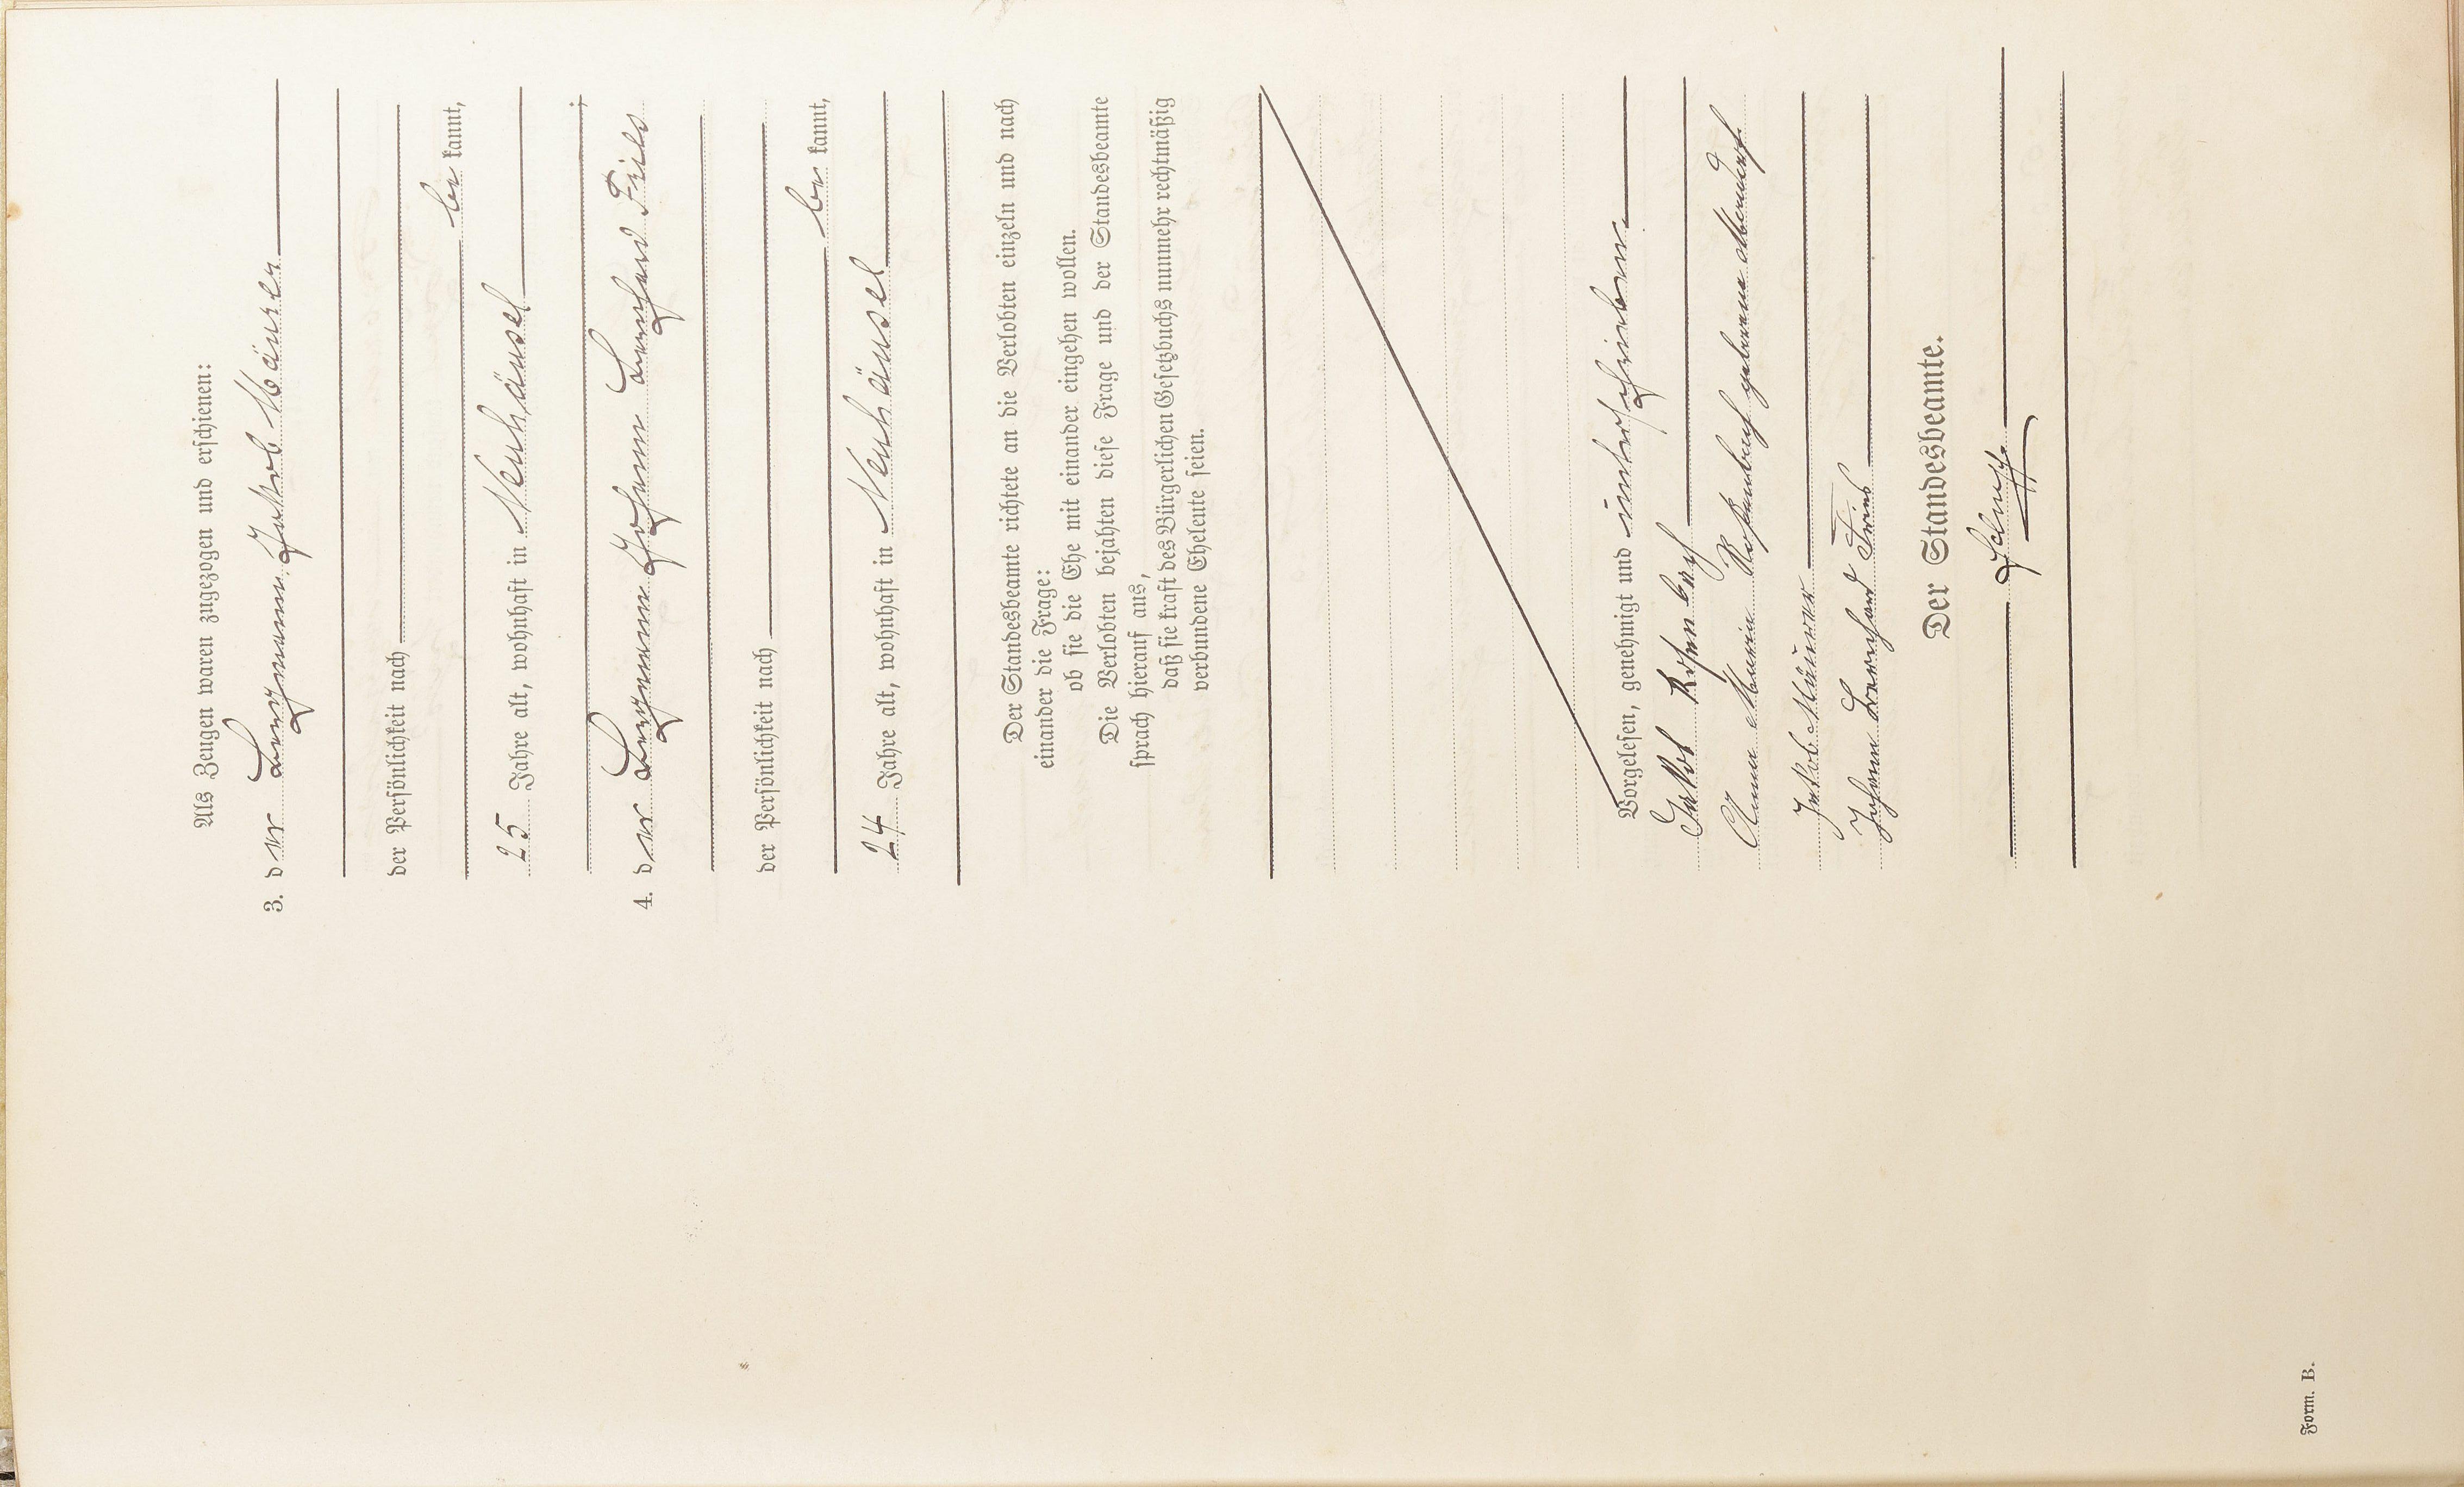 Als Zeugen waren zugezogen und erschienen:
3. der Bergmann Jakob Mäurer
der Persönlichkeit nach
be kannt,
25 Jahre alt, wohnhaft in Neuhäusel
;
4. der Bergmann Johann Bernhard
der Persönlichkeit nach
be kannt,
24 Jahre alt, wohnhaft in Neuhäusel
Der Standesbeamte richtete an die Verlobten einzeln und nach
einander die Frage:
ob sie die Ehe mit einander eingehen wollen.
Die Verlobten bejahten diese Frage und der Standesbeamte
sprach hierauf aus,
daß sie kraft des Bürgerlichen Gesetzbuchs nunmehr rechtmäßig
verbundene Eheleute seien.
Vorgelesen, genehmigt und unterschrieben
Jakob
Anna Maria geborene
Jakob Mäurer
Johann Bernhard
Der Standesbeamte.
Form. B.